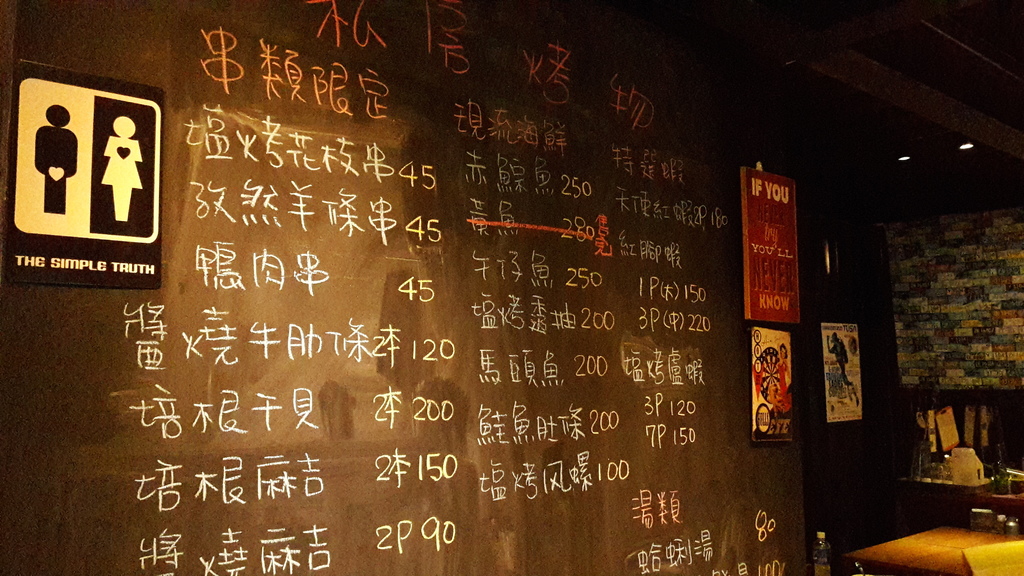 私房烤物
串類限定
塩烤花枝串 45
孜然羊條串 45
鴨肉串 45
醬燒牛肋條 2本 120
培根干貝 2本 200
培根麻吉 2本 150
醬燒麻吉 2P 90
現流海鮮
赤鯮魚 250
黃魚 280 售完
午仔魚 250
塩烤透抽 200
馬頭魚 200
鮭魚肚條 200
塩烤风螺 100
特選蝦
天使紅蝦 2P 180
紅腳蝦
1P(大) 150
3P(中) 220
塩烤盧蝦
3P 120
7P 150
湯類
蛤蜊湯 80
THE SIMPLE TRUTH
IF YOU
NEVER
try
YOU'LL
NEVER
KNOW
TUSA